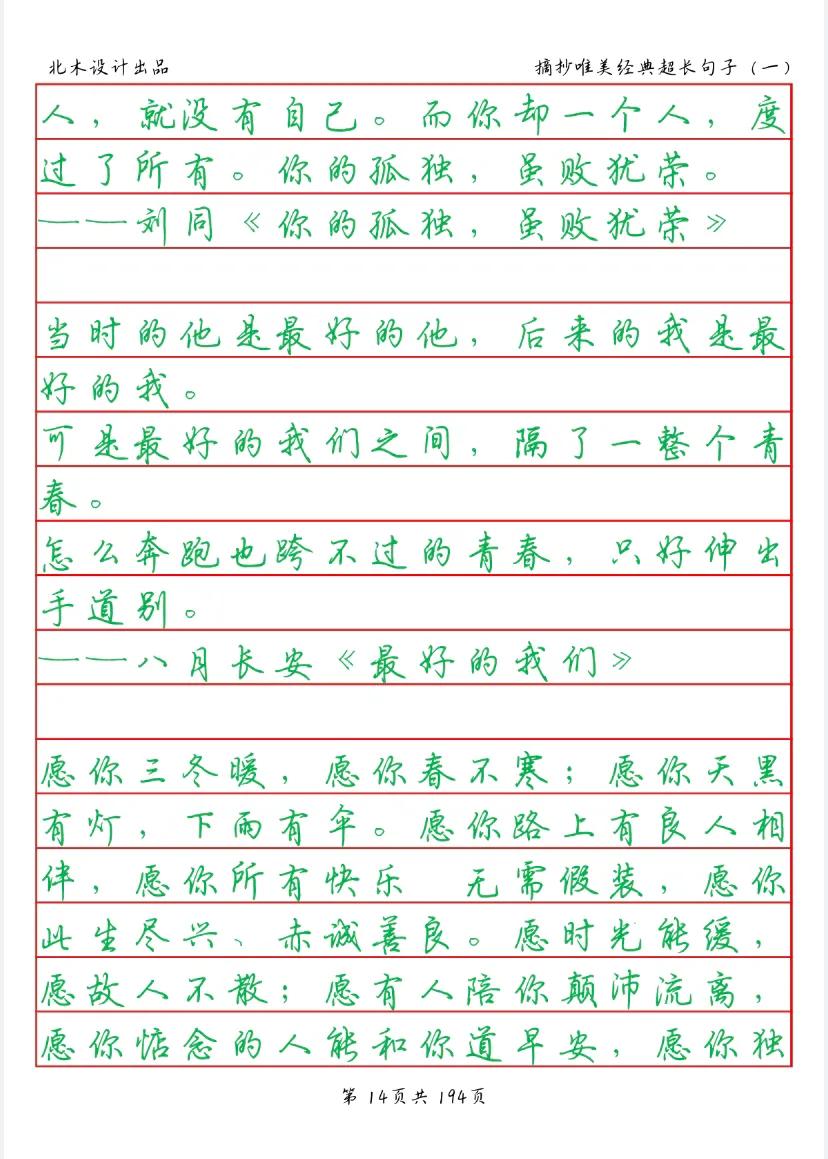 北木设计出品 摘抄唯美经典超长句子（一）
人，就没有自己。而你却一个人，度
过了所有。你的孤独，虽败犹荣。
——刘同《你的孤独，虽败犹荣》
当时的他是最好的他，后来的我是最
好的我。
可是最好的我们之间，隔了一整个青
春。
怎么奔跑也跨不过的青春，只好伸出
手道别。
——八月长安《最好的我们》
愿你三冬暖，愿你春不寒；愿你天黑
有灯，下雨有伞。愿你路上有良人相
伴，愿你所有快乐 无需假装，愿你
此生尽兴、赤诚善良。愿时光能缓，
愿故人不散；愿有人陪你颠沛流离，
愿你惦念的人能和你道早安，愿你独
第 14页共 194页